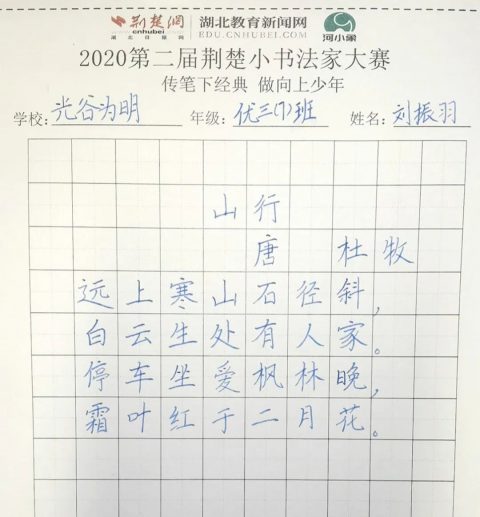 荆楚网 湖北教育新闻网
cnhubei EDU.CNHUBEI.COM 河小象
湖北日报网
2020第二届荆楚小书法家大赛
传笔下经典 做向上少年
学校:光谷为明 年级:优三(7)班 姓名:刘振羽
山行
唐 杜牧
远上寒山石径斜,
白云生处有人家。
停车坐爱枫林晚,
霜叶红于二月花。